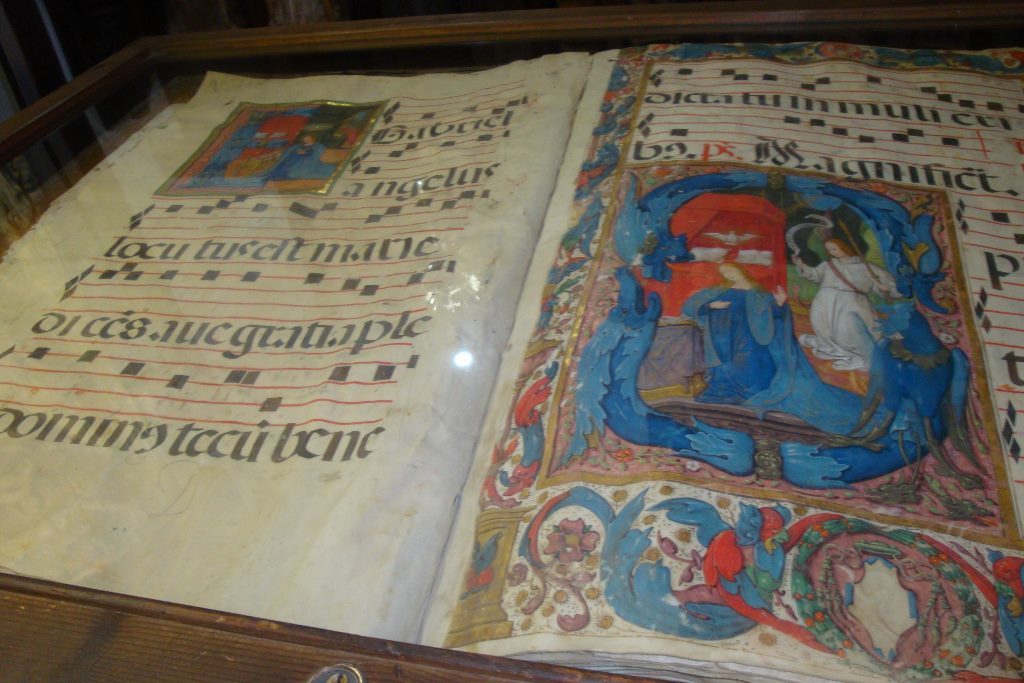 Gabriel
angelus
locu tus est marie
di cēs . aue gratia ple
dominꝰ tecū bene
dicta tu in muli eri
bꝰ. ps. Magnificat.